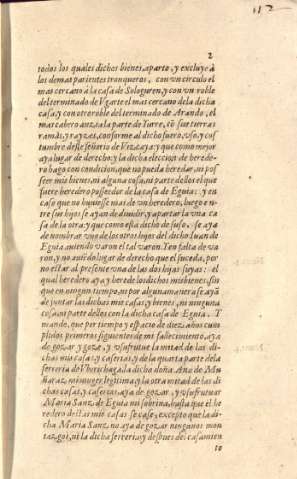 112
2
todos los quales dichos bienes, aparto, y excluyo à
los demas parientes tronqueros, con vn circulo el
mas cercano à la casa de Sologuren, y con vn roble
determinado de Vgarte el mas cercano de la dicha
casa, y con otro roble determinado de Arando, el
mas cabero àzia la parte de Yurre, cõ sus tierras
ramas, y rayzes, conforme al dicho fuero, vso, y cos
tumbre deste señorio de Vizcaya, y que como mejor
aya lugar de derecho: y la dicha eleccion de herede
ro hago con condicion, que no pueda heredar, ni pos
seer mis bienes, ni alguna cosa, ni parte dellos el que
fuere heredero possedor de la casa de Eguia: y en
caso que no huuiesse mas de vn heredero, luego en
tre sus hijos se ayan de diuidir, y apartar la vna ca
sa de la otra, y que como està dicho de suso, se aya
de nombrar vno de los otros hijos del dicho Iuan de
Eguia, auiendo varon el tal varon. Y en falta de va
ron, y no auiẽdo lugar de derecho que el suceda, por
no estar al presente vna de las dos hijas suyas: el
qual heredero aya y herede los dichos mis bienes, sin
que en ningun tiempo, ni por alguna manera se aya
de juntar las dichas mis casas, y bienes, ni ninguna
cosa, ni parte dellos con la dicha casa de Eguia. Y
mando, que por tiempo y espacio de diez años cum
plidos primeros siguientes de mi fallecimiento, aya
de gozar, y goze, y vsufrutue la mitad de las di-
chas mis casas, y caserias, y de la quarta parte de la
ferreria de Vberichaga la dicha doña Ana de Mu
ñaraz, mi muger legitima, y la otra mitad de las di
chas casas, y caserias, aya de gozar, y vsufrutuar
Maria Sanz de Eguia mi sobrina, hasta que el he
redero destas mis casas se case, excepto que la di
cha Maria Sanz, no aya de gozar ningunos mon
tazgos, ni la dicha ferreria, y despues del casamien
to